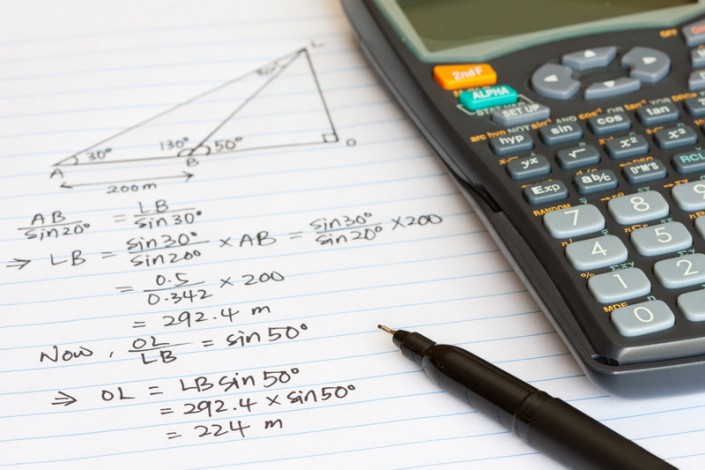 L
20°
30°
130°
50°
A
B
O
200m
AB/sin20° = LB/sin30°
⇒ LB = sin30°/sin20° × AB = sin30°/sin20° × 200
= 0.5/0.342 × 200
= 292.4 m
Now, OL/LB = sin 50°
⇒ OL = LB sin 50°
= 292.4 × sin 50°
= 224 m
2ndF
ALPHA
SET UP
hyp
sin
cos
tan
yx
√
x²
x³
Exp
ab/c
D°M'S
RCL
RANDOM
7
8
9
4
5
1
2
0